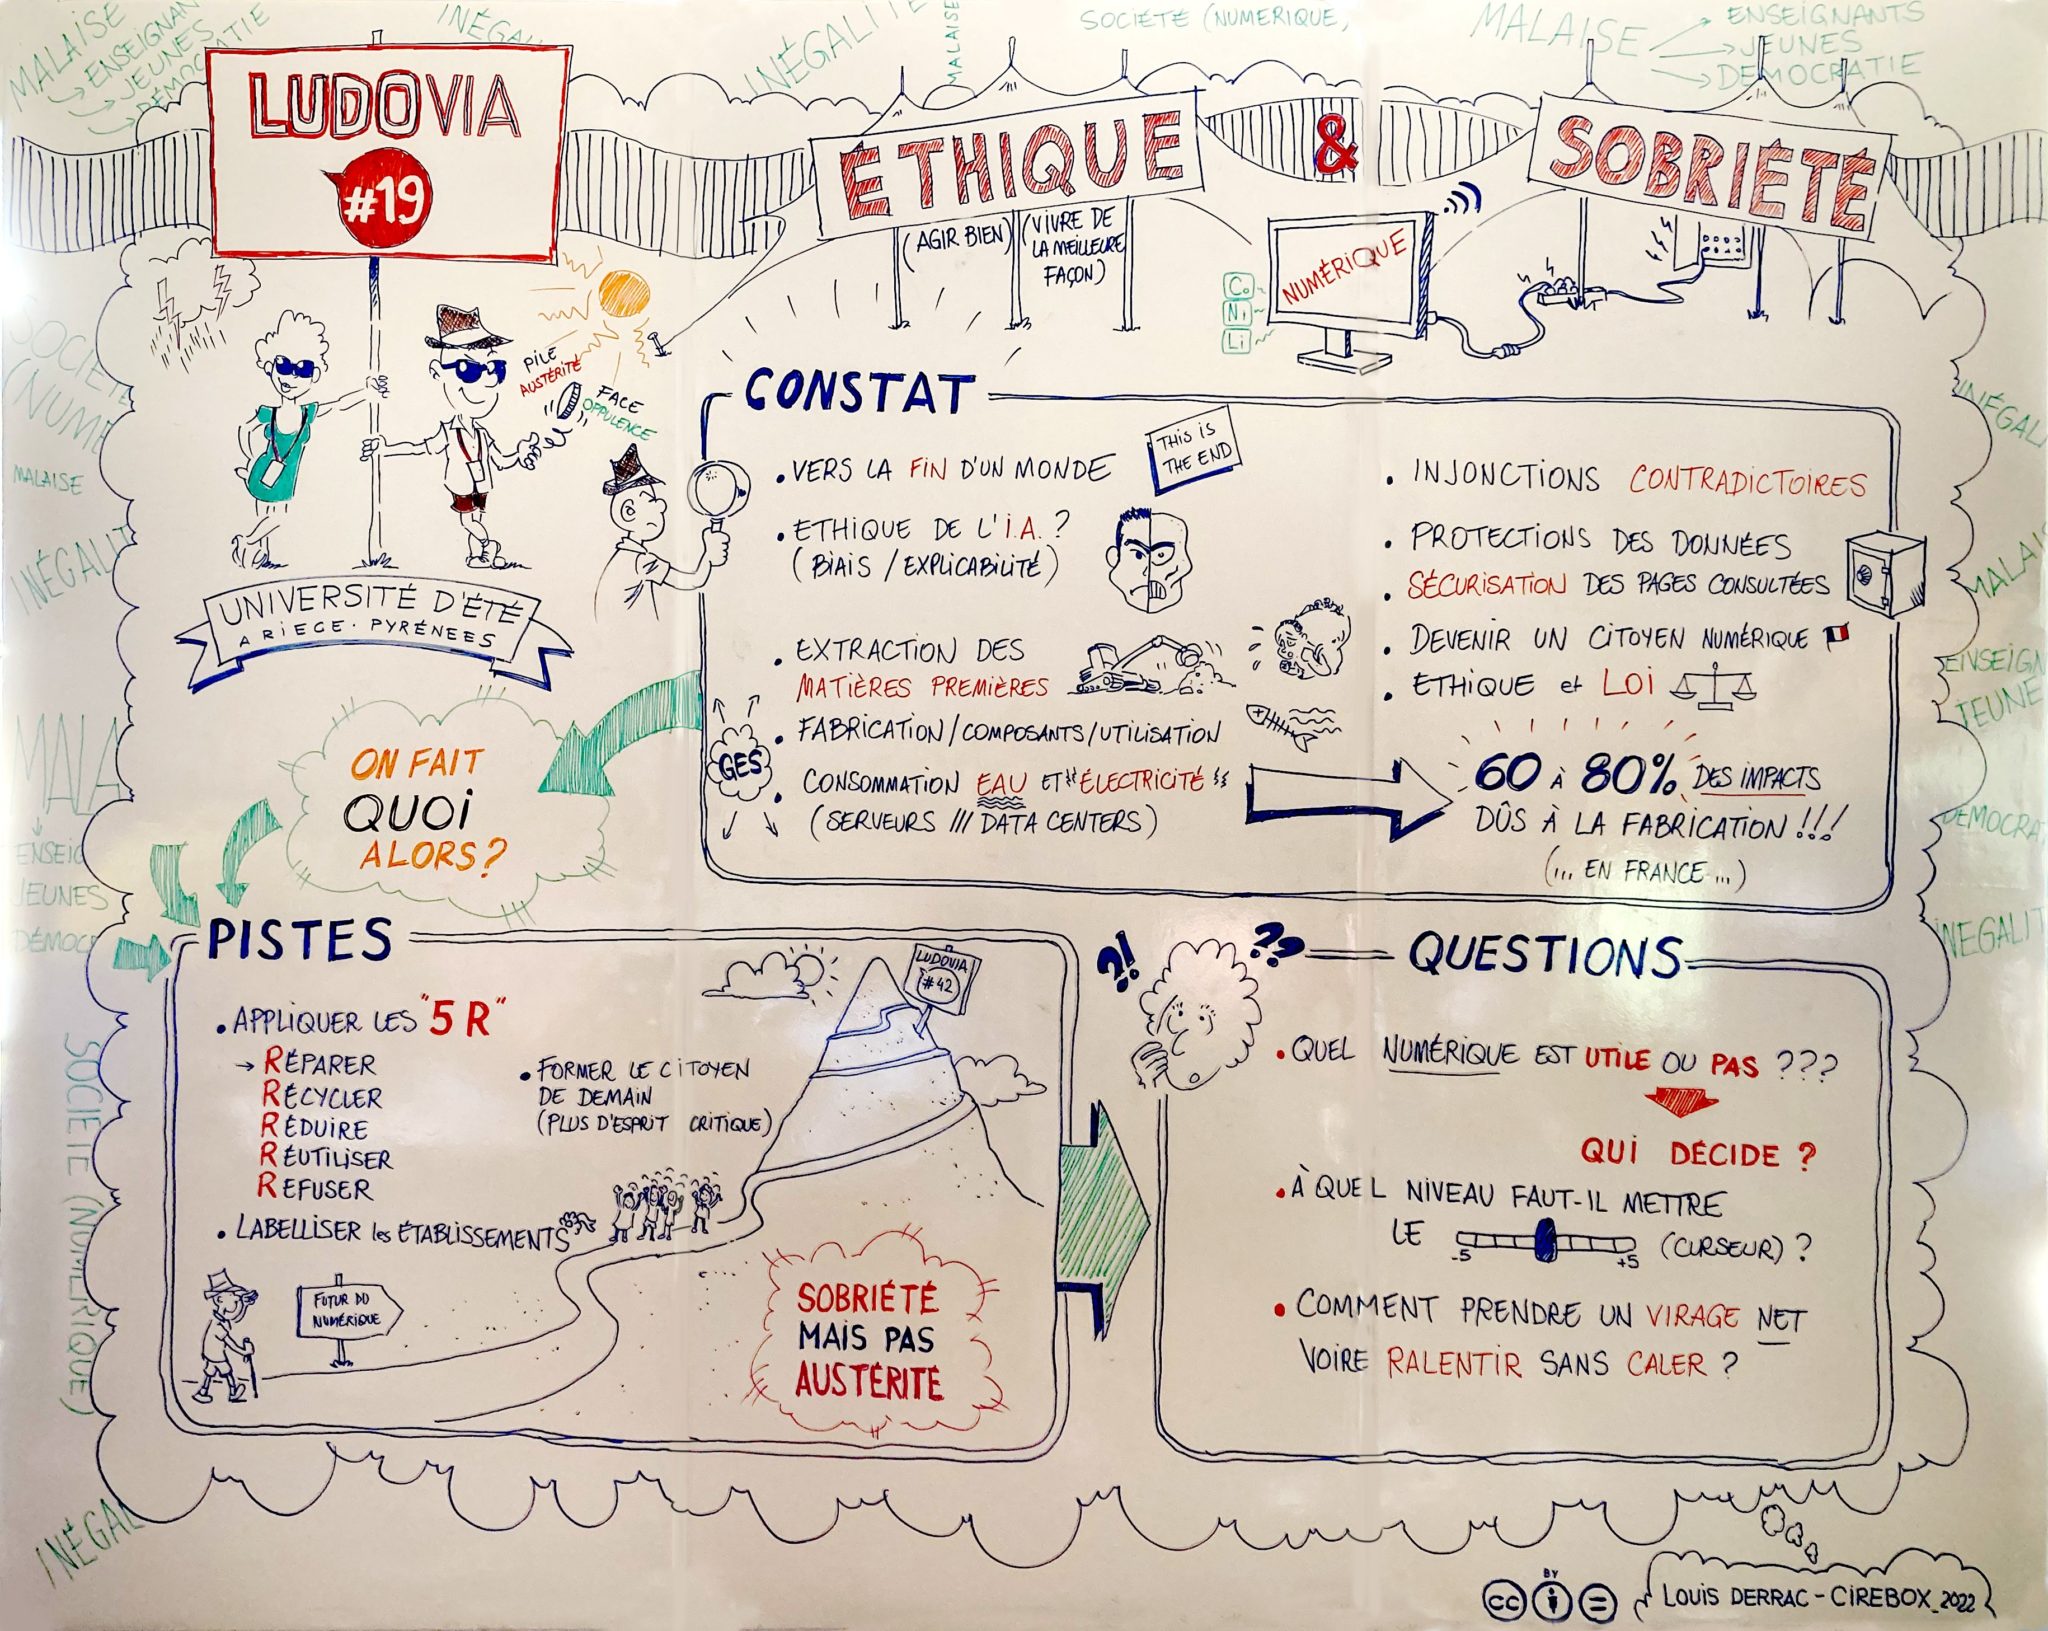 MALAISE
ENSEIGNAN
JEUNES
DÉMOC
ATIE
INÉGAL
INÉGALITÉ
MALAISE
SOCIÉTÉ (NUMERIQUE,
MALAISE
ENSEIGNANTS
JEUNES
DÉMOCRATIE
LUDOVIA
#19
ÉTHIQUE
&
SOBRIÉTÉ
(AGIR BIEN)
(VIVRE DE
LA MEILLEURE
FAÇON)
NUMÉRIQUE
Co
Ni
Li
PILE
AUSTÉRITÉ
FACE
OPPULENCE
UNIVERSITÉ D'ÉTÉ
ARIEGE-PYRÉNÉES
CONSTAT
• VERS LA FIN D'UN MONDE
THIS IS
THE END
• ETHIQUE DE L'I.A. ?
(BIAIS / EXPLICABILITÉ)
• EXTRACTION DES
MATIÈRES PREMIÈRES
• FABRICATION/COMPOSANTS/UTILISATION
GES
• CONSOMMATION EAU ET ÉLECTRICITÉ
(SERVEURS /// DATA CENTERS)
• INJONCTIONS CONTRADICTOIRES
• PROTECTIONS DES DONNÉES
• SÉCURISATION DES PAGES CONSULTÉES
• DEVENIR UN CITOYEN NUMÉRIQUE
• ETHIQUE et LOI
60 À 80% DES IMPACTS
DÛS À LA FABRICATION !!!
(... EN FRANCE ...)
ON FAIT
QUOI
ALORS ?
PISTES
• APPLIQUER LES "5 R"
→ RÉPARER
RECYCLER
RÉDUIRE
RÉUTILISER
REFUSER
• LABELLISER les ÉTABLISSEMENTS
• FORMER LE CITOYEN
DE DEMAIN
(PLUS D'ESPRIT CRITIQUE)
LUDOVIA
#42
FUTUR DU
NUMÉRIQUE
SOBRIÉTÉ
MAIS PAS
AUSTÉRITÉ
?!
??
QUESTIONS
• QUEL NUMÉRIQUE EST UTILE OU PAS ???
QUI DÉCIDE ?
• À QUEL NIVEAU FAUT-IL METTRE
LE -5 +5 (CURSEUR) ?
• COMMENT PRENDRE UN VIRAGE NET
VOIRE RALENTIR SANS CALER ?
SOCIÉTÉ
(NUMÉ
MALAISE
INÉGALIT
MALA
ENSEIG
JEUNES
DÉMOC
SOCIÉTÉ (NUMÉRIQUE)
INÉGAL
INÉGALI
MALAIS
ENSEIGN
JEUNE
DEMOCRA
INÉGALIT
CC
BY
=
LOUIS DERRAC - CIREBOX_2022